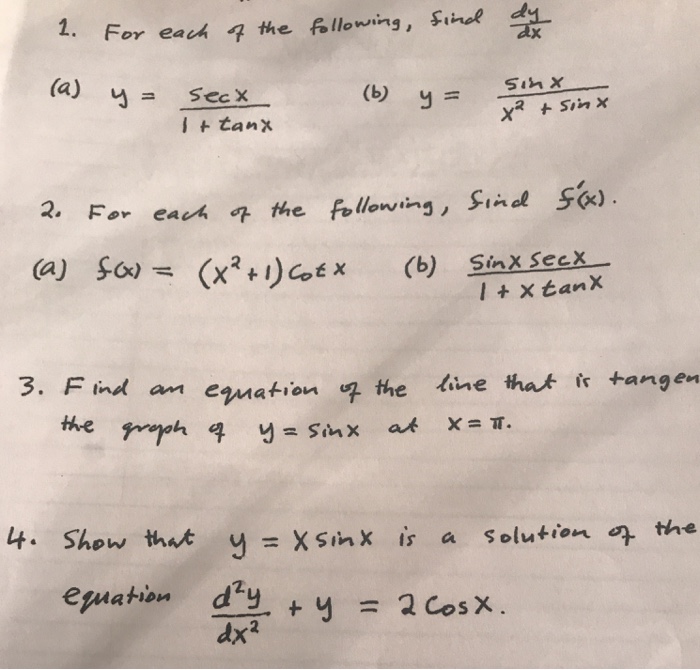 1. For each of the following, find dy/dx
(a) y = sec x / (1 + tan x) (b) y = sin x / (x² + sin x)
2. For each of the following, find f'(x).
(a) f(x) = (x² + 1) cot x (b) sin x sec x / (1 + x tan x)
3. Find an equation of the line that is tangen
the graph of y = sin x at x = π.
4. Show that y = x sin x is a solution of the
equation d²y/dx² + y = 2 cos x.